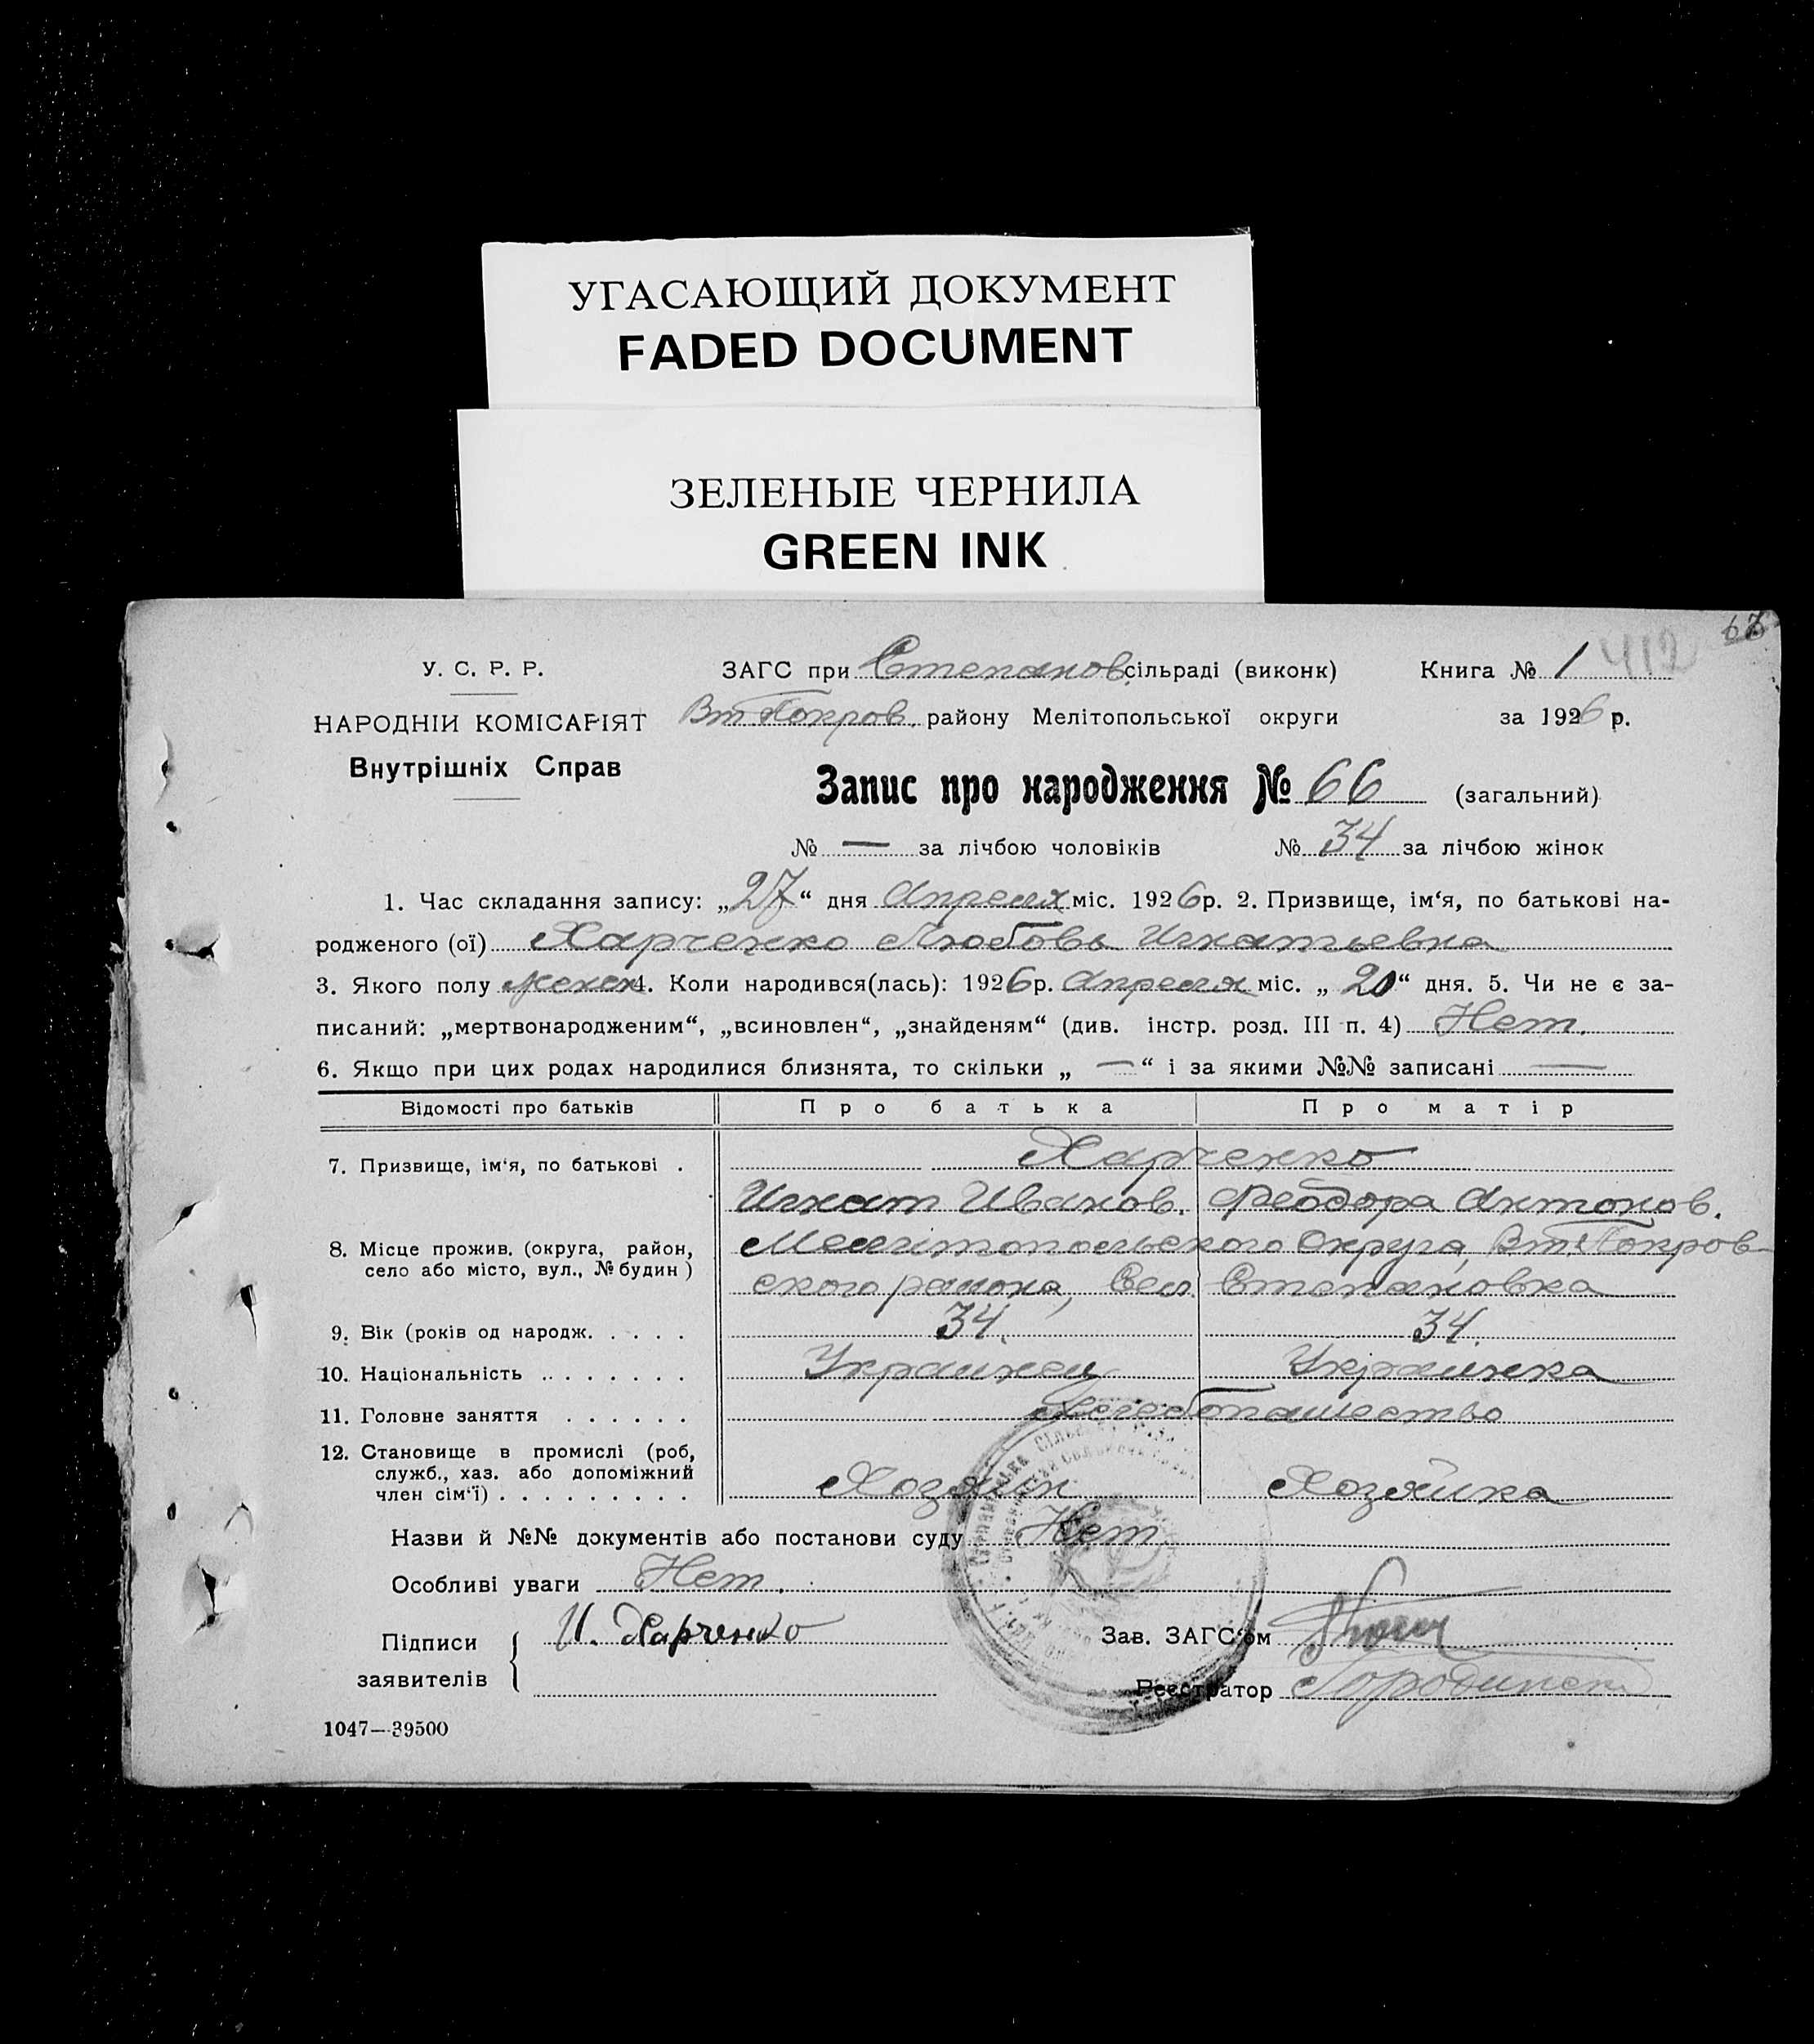 УГАСАЮЩИЙ ДОКУМЕНТ
FADED DOCUMENT
ЗЕЛЕНЫЕ ЧЕРНИЛА
GREEN INK
412
У. С. Р. Р. ЗАГС при Степанов. сільраді (виконк) Книга № 1
НАРОДНІИ КОМІСАРІЯТ Вт Покров. району Мелітопольської округи за 1926 р.
Внутрішніх Справ
Запис про народження № 66 (загальний)
№ — за лічбою чоловіків № 34 за лічбою жінок
1. Час складання запису: „27“ дня Апреля міс. 1926 р. 2. Призвище, ім‘я, по батькові на-
родженого (ої) Харченко Любовь Игнатьевна
3. Якого полу женск 4. Коли народився(лась): 1926 р. Апреля міс. „ 20 “ дня. 5. Чи не є за-
писаний: „мертвонародженим“, „всиновлен“, „знайденям“ (див. інстр. розд. III п. 4) Нет.
6. Якщо при цих родах народилися близнята, то скільки „ — “ і за якими №№ записані —
Відомості про батьків Про батька Про матір
7. Призвище, ім‘я, по батькові . Харченко
Игнат Иванов. Феодора Антонов.
8. Місце прожив. (округа, район, Мелитопольского Округа, Вт. Покров-
село або місто, вул., № будин ) ского района, Сел. Степановка
9. Вік (років од народж. . . . . 34. 34.
10. Національність . . . . . . . Украинец Украинка
11. Головне заняття . . . . . . Хлебопашество
12. Становище в промислі (роб,
служб., хаз. або допоміжний
член сім‘ї) . . . . . . . . . Хозяин Хозяйка
Назви й №№ документів або постанови суду Нет
Особливі уваги Нет.
Підписи И. Харченко Зав. ЗАГС‘ом
заявителів Реєстратор
1047—39500